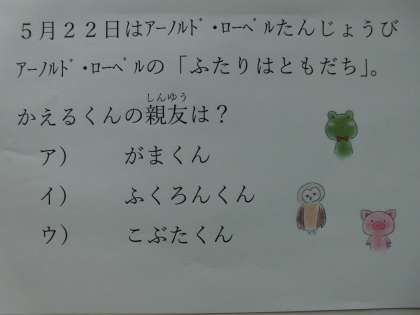 ５月２２日はｱｰﾉﾙﾄﾞ・ﾛｰﾍﾞﾙたんじょうび
ｱｰﾉﾙﾄﾞ・ﾛｰﾍﾞﾙの「ふたりはともだち」。
しんゆう
かえるくんの親友は？
ア） がまくん
イ） ふくろんくん
ウ） こぶたくん